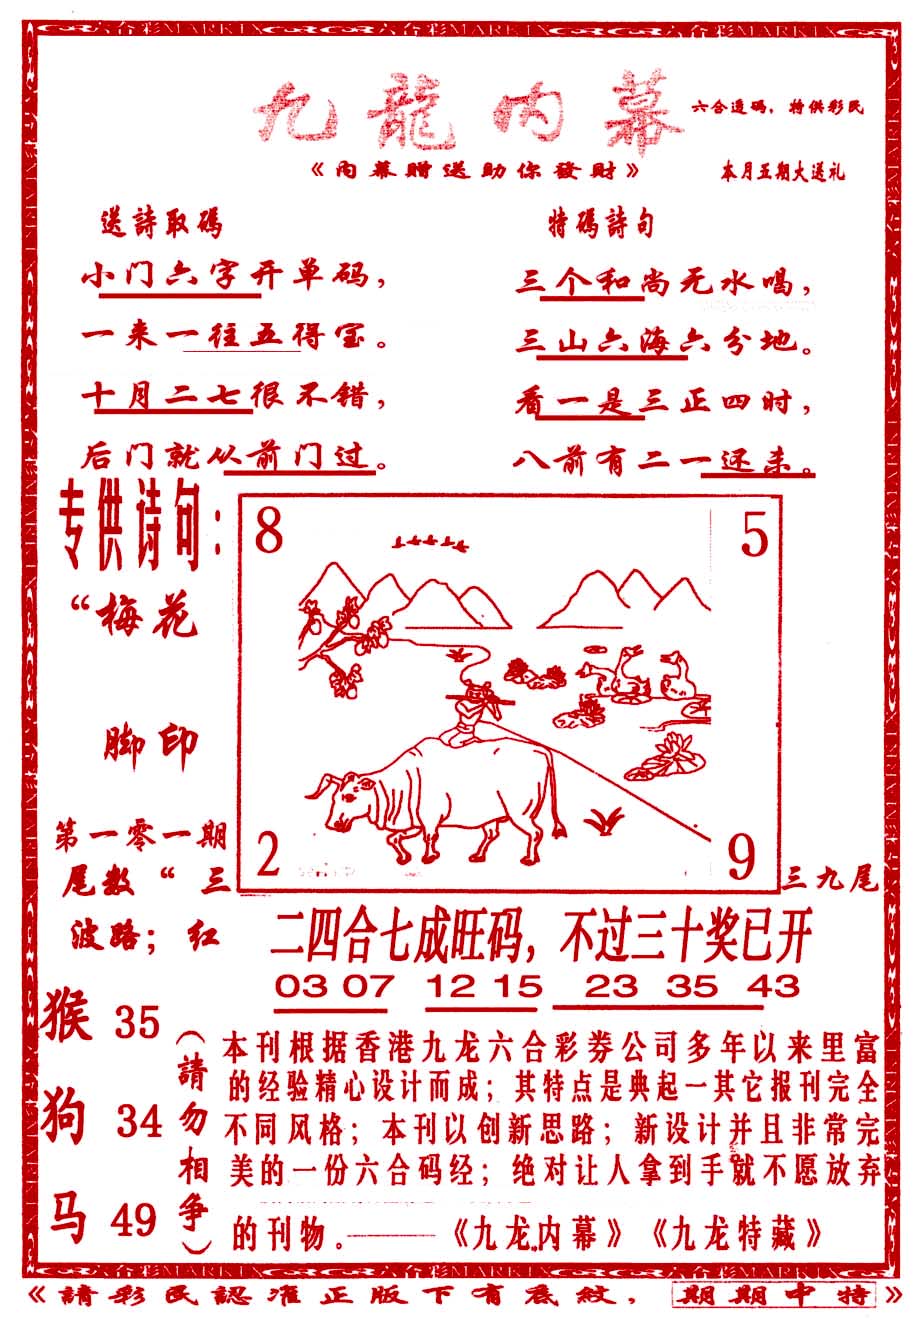 六合彩MARK
九龍内幕
六合透码，特供彩民
《内幕贈送助你發財》
本月五期大送礼
送詩取碼
小门六字开单码，
一来一往五得宝。
十月二七很不错，
后门就从前门过。
特碼詩句
三个和尚无水喝，
三山六海六分地。
看一是三正四时，
八前有二一还来。
专供诗句：
“梅花
脚印
8
5
2
9
第一零一期
尾数“三
三九尾
波路；红
二四合七成旺码，不过三十奖已开
03 07 12 15 23 35 43
猴 35
狗 34
马 49
（請勿相争）
本刊根据香港九龙六合彩券公司多年以来里富
的经验精心设计而成；其特点是典起一其它报刊完全
不同风格；本刊以创新思路；新设计并且非常完
美的一份六合码经；绝对让人拿到手就不愿放弃
的刊物。——《九龙内幕》《九龙特藏》
《請彩民認准正版下有底紋，期期中特》